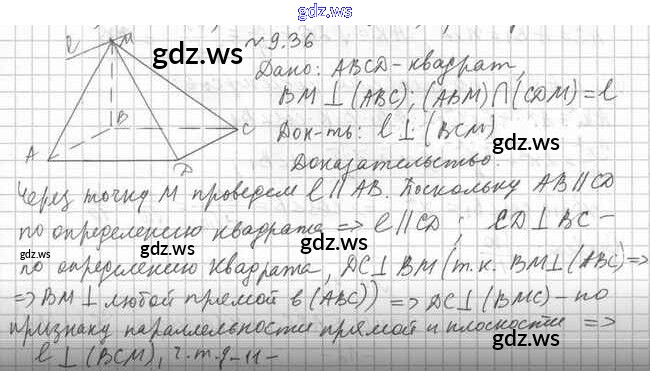 gdz.ws
ℓ M №9.36
gdz.ws
Дано: ABCD - квадрат,
BM ⊥ (ABC); (ABM) ∩ (CDM) = ℓ
B C Док-ть: ℓ ⊥ (BCM)
gdz.ws
A D Доказательство.
Через точку M проведем ℓ || AB. Поскольку AB || CD
gdz.ws
по определению квадрата => ℓ || CD; CD ⊥ BC -
gdz.ws
по определению квадрата, DC ⊥ BM (т.к. BM ⊥ (ABC) =>
=> BM ⊥ любой прямой в (ABC)) => DC ⊥ (BMC) - по
gdz.ws
признаку параллельности прямой и плоскости =>
gdz.ws
ℓ ⊥ (BCM), ч.т.д -11-